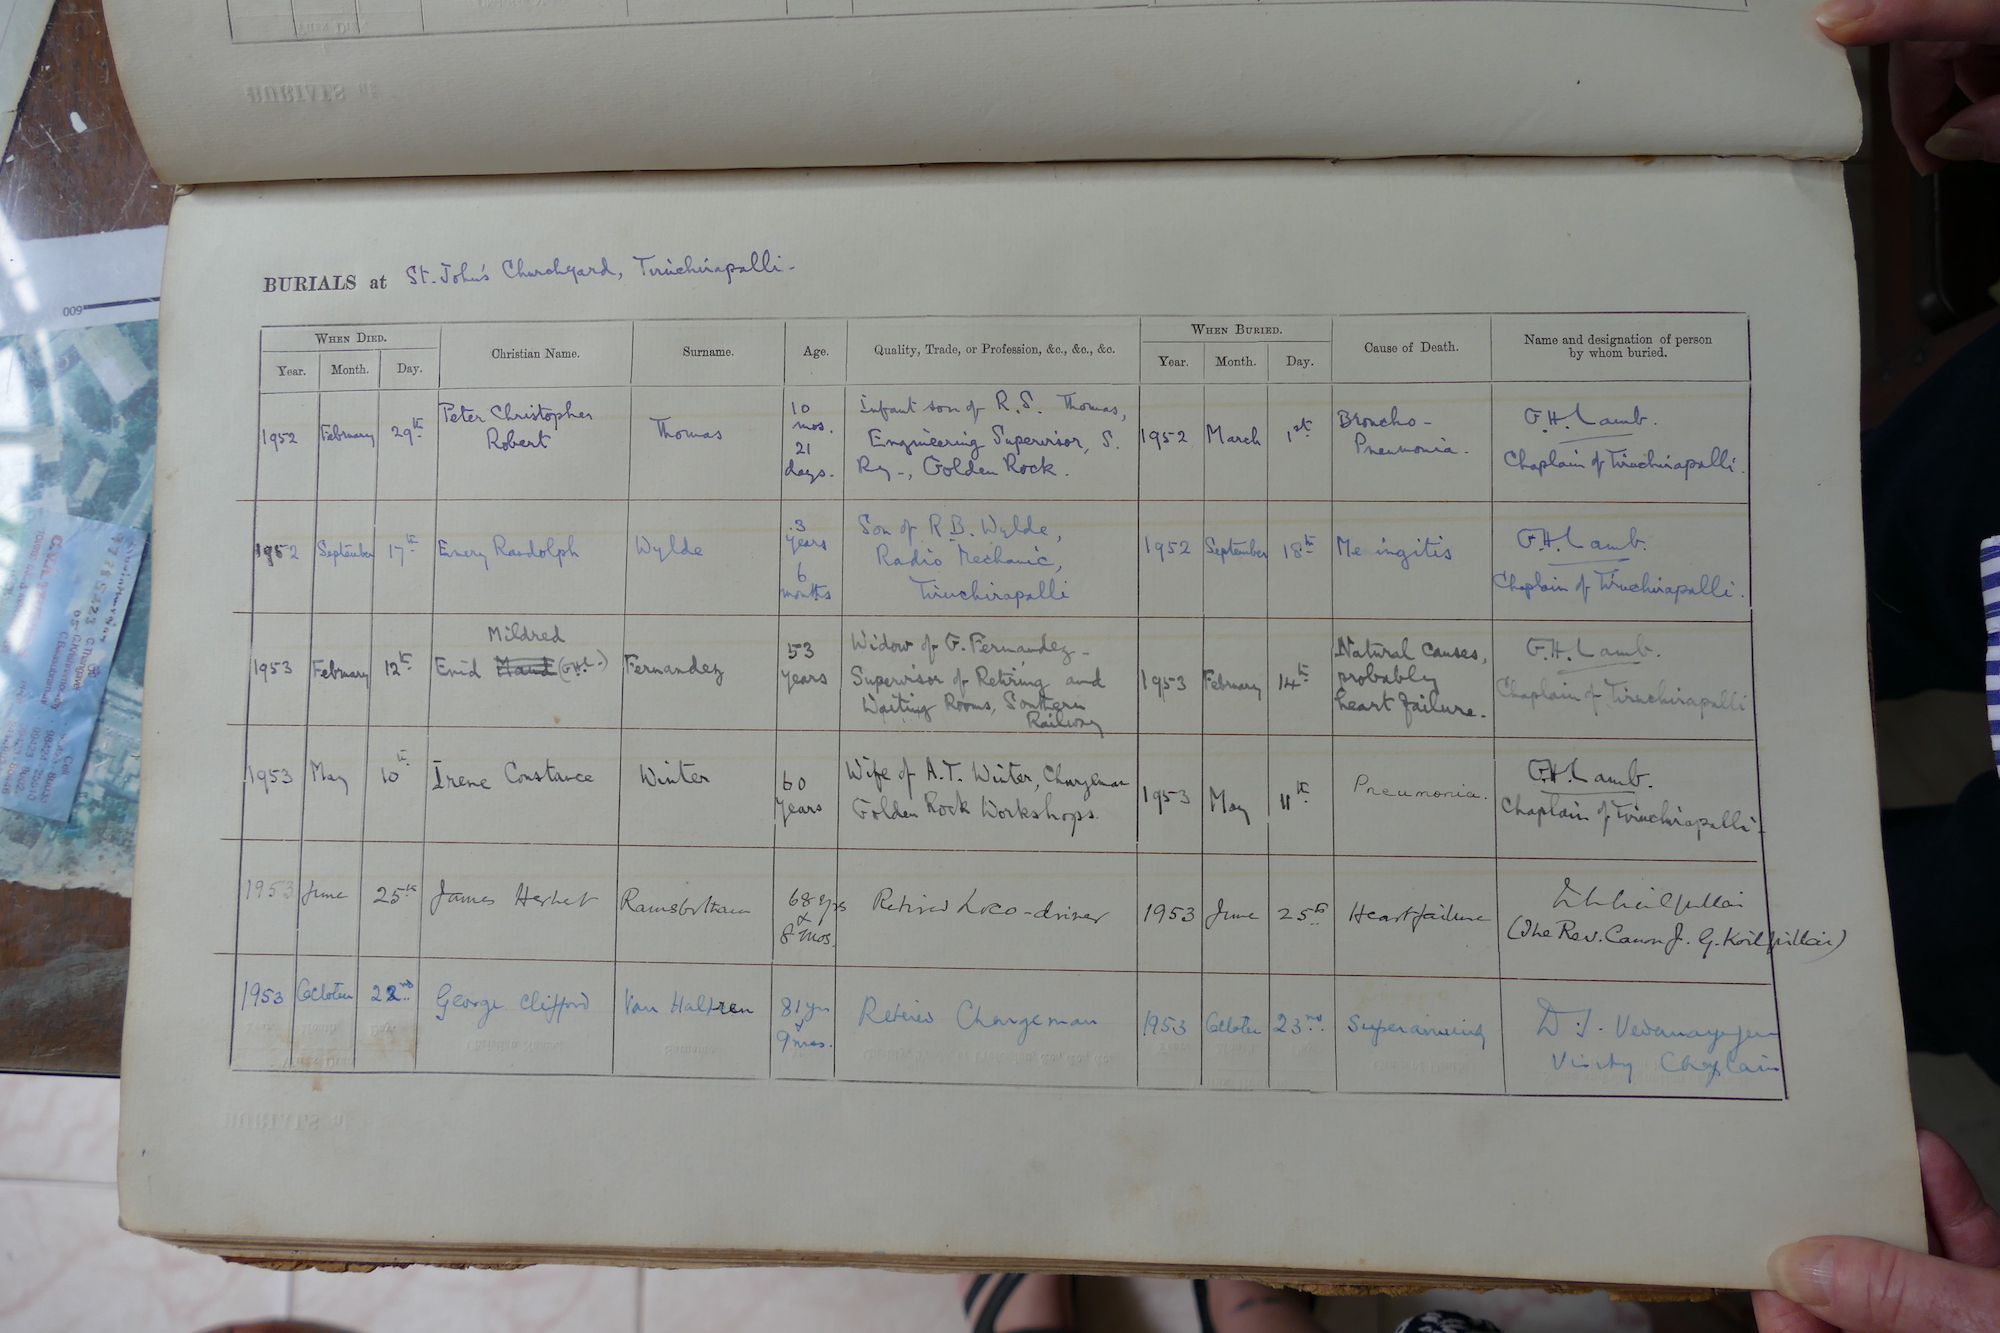 BURIALS at St. John's Churchyard, Tiruchirapalli.
When Died.
When Buried.
Year.
Month.
Day.
Christian Name.
Surname.
Age.
Quality, Trade, or Profession, &c., &c., &c.
Year.
Month.
Day.
Cause of Death.
Name and designation of person
by whom buried.
1952
February
29th
Peter Christopher
Robert
Thomas
10
mos.
21
days.
Infant son of R.S. Thomas,
Engineering Supervisor, S.
Ry., Golden Rock.
1952
March
1st
Broncho-
Pneumonia.
G.H. Lamb.
Chaplain of Tiruchirapalli.
1952
September
17th
Emery Randolph
Wylde
3
years
6
months
Son of R.B. Wylde,
Radio Mechanic,
Tiruchirapalli
1952
September
18th
Me ingitis
G.H. Lamb.
Chaplain of Tiruchirapalli.
1953
February
12th
Mildred
Enid Maud (G.H.L.)
Fernandez
53
years
Widow of G. Fernandez-
Supervisor of Retiring and
Waiting Rooms, Southern
Railway
1953
February
14th
Natural causes,
probably
heart failure.
G.H. Lamb.
Chaplain of Tiruchirapalli
1953
May
10th
Irene Constance
Winter
60
years
Wife of A.T. Winter, Chargeman
Golden Rock Workshops.
1953
May
11th
Pneumonia.
G.H. Lamb.
Chaplain of Tiruchirapalli.
1953
June
25th
James Herbert
Ramsbotham
68 yrs
&
8 mos.
Retired Loco-driver
1953
June
25th
Heart failure
(The Rev. Canon J. G. Koilpillai)
1953
October
22nd
George Clifford
Van Haltren
81 yrs
9 mos.
Retired Chargeman
1953
October
23rd
D. S.
Chaplain
BURIALS at
009